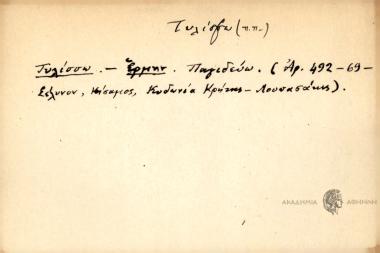 Τυλίσσω (π.π.)
Τυλίσσω. – Ἑρμην. Παγιδεύω. (Ἀρ. 492-69-
Σέλυνον, Κίσαμος, Κυδωνία Κρήτης – Λουπασάκις).
ΑΚΑΔΗΜΙΑ ΑΘΗΝΩΝ